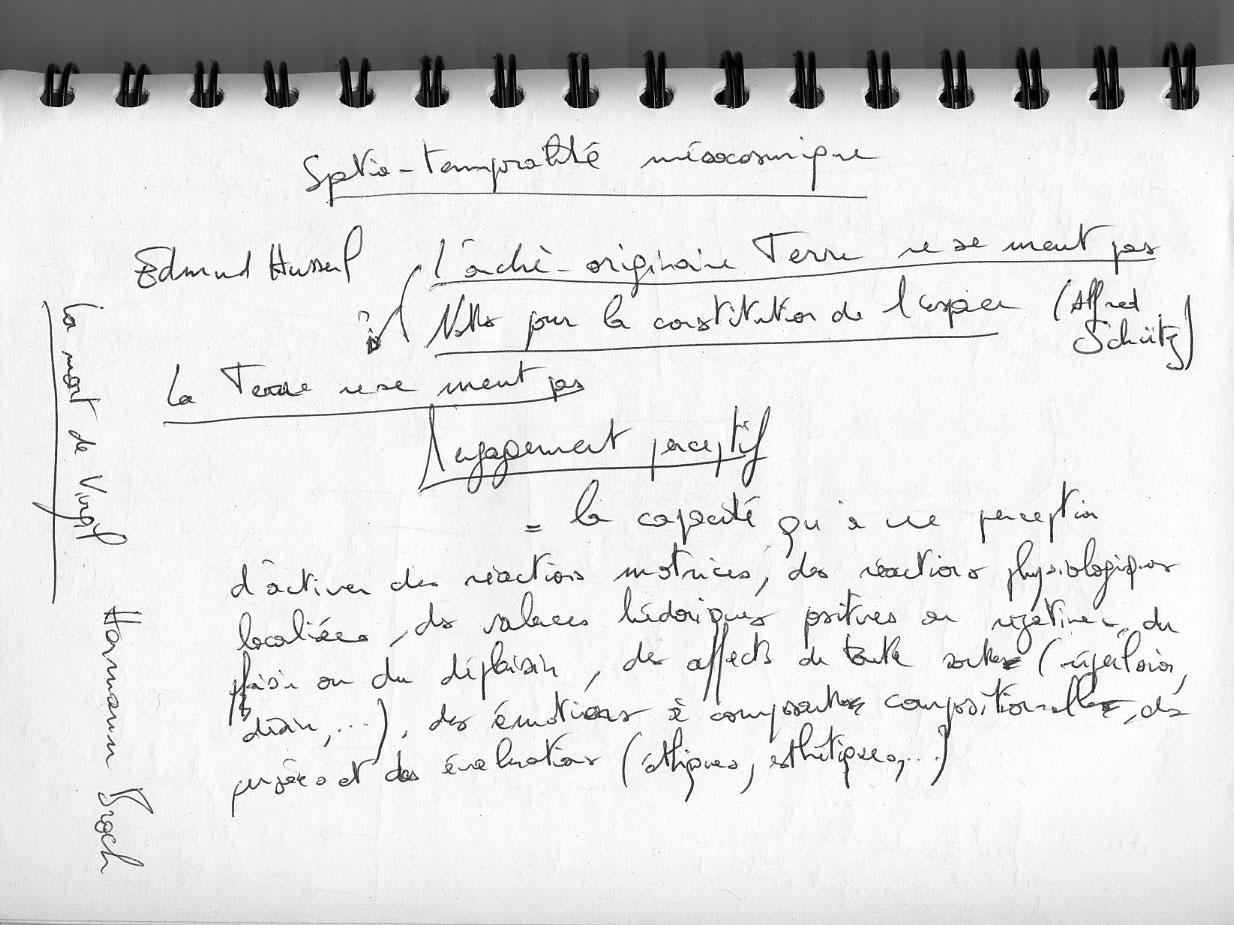 Spatio-temporalité mésocosmique
Edmund Husserl L'archè-originaire Terre ne se meut pas
Notes pour la constitution de l'espace (Alfred
Schütz)
La Terre ne se meut pas
L'engagement perceptif
= la capacité qu'a une perception
d'activer des réactions motrices, des réactions physiologiques
localisées, des valences hédoniques positives ou négatives, du
plaisir ou du déplaisir, des affects de toute sorte (répulsion,
désir, ...), des émotions à composante compositionnelle, des
pensées et des évaluations (éthiques, esthétiques, ...)
La mort de Virgile
Hermann Broch